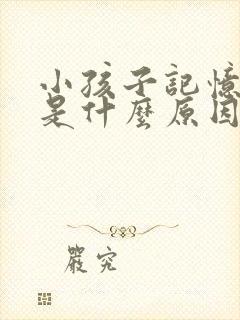 小孩子記憶
是什麼原因
嚴究